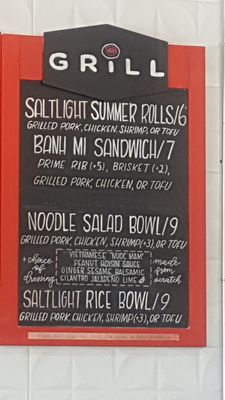 GRILL
SALTLIGHT SUMMER ROLLS/6
GRILLED PORK, CHICKEN, SHRIMP, OR TOFU
BANH MI SANDWICH/7
PRIME RIB (+5), BRISKET (+2),
GRILLED PORK, CHICKEN, OR TOFU
NOODLE SALAD BOWL/9
GRILLED PORK, CHICKEN, SHRIMP(+3), OR TOFU
+ choice of dressing
VIETNAMESE "NUOC MAM"
PEANUT HOISIN SAUCE
GINGER SESAME BALSAMIC
CILANTRO JALAPENO LIME
made from scratch
SALTLIGHT RICE BOWL/9
GRILLED PORK, CHICKEN, SHRIMP(+3), OR TOFU